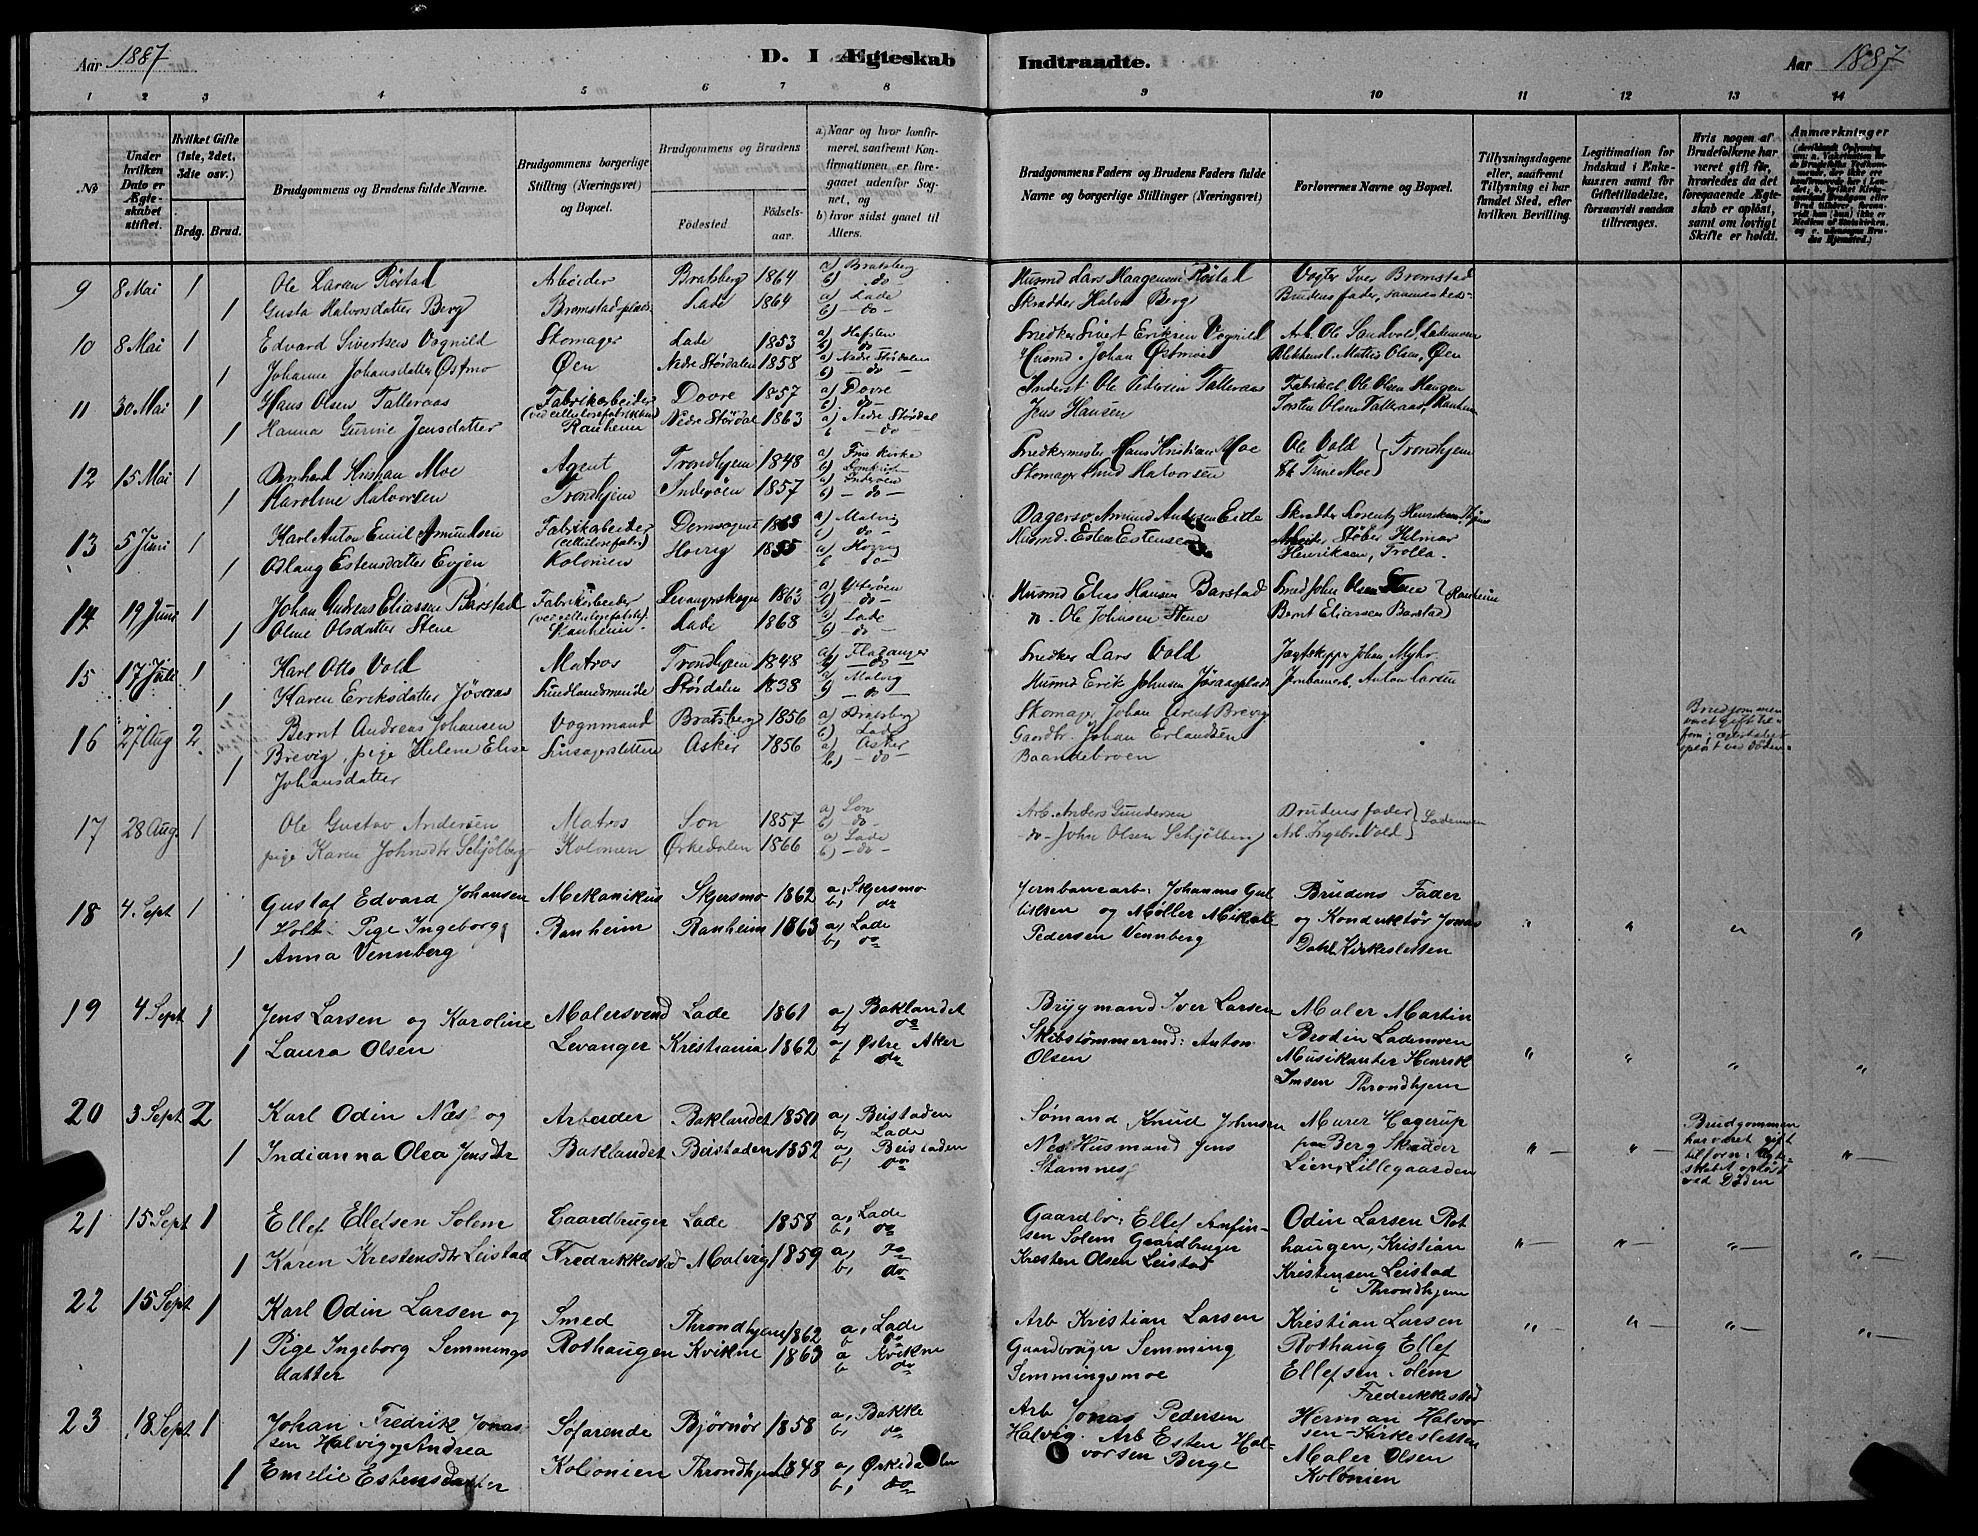 Aar 1887
D. I Ægteskab Indtraadte.
Aar 1887
1 2 3 4 5 6 7 8 9 10 11 12 13 14
No
Under hvilken Dato er Ægteskabet stiftet.
Hvilket Gifte (1ste, 2det, 3die osv.)
Brdg. Brud.
Brudgommens og Brudens fulde Navne.
Brudgommens borgerlige Stilling (Næringsvei) og Bopæl.
Brudgommens og Brudens
Fødested. Fødselsaar.
a) Naar og hvor konfirmeret, saafremt Konfirmationen er foregaaet udenfor Sognet, og
b) hvor sidst gaaet til Alters.
Brudgommens Faders og Brudens Faders fulde Navne og borgerlige Stillinger (Næringsvei)
Forlovernes Navne og Bopæl.
Tillysningsdagene eller, saafremt Tillysning ei har fundet Sted, efter hvilken Bevilling.
Legitimation for Indskud i Enkekassen samt for Giftetilladelse, forsaavidt saadan tiltrænges.
Hvis nogen af Brudefolkene har været gift før, hvorledes da det foregaaende Ægteskab er opløst, samt om lovligt Skifte er holdt.
Anmærkninger
9 8 Mai 1 Ole Larsen Røstad Arbeider Bratsberg 1864 a) Bratsberg b) do Husmd Lars Haagensen Røstad Vogter Iver Bromstad
1 Gusta Halvorsdatter Berg Bromstad-plads Lade 1864 a) Lade b) do Skrædder Halvor Berg Brudens fader, sammesteds
10 8 Mai 1 Edvard Sivertsen Vognild Skomager Lade 1853 a) Hafslen b) do Snedker Sivert Eriksen Vognild Arb. Ole Sandvold, Lademoen
1 Johanne Johansdatter Østmo Øen Nedre Størdalen 1858 a) Nedre Størdalen b) do Husmd. Johan Østmo Blikkensl. Mattis Olsen, Øen
11 30 Mai 1 Hans Olsen Talleraas Fabrikarbeider (ved cellulosefabrikken) Dovre 1857 a) Dovre b) do Inderst Ole Pedersen Talleraas Fabrikel. Ole Olsen Haugen
1 Hanna Gurine Jensdatter Ranheim Nedre Størdal 1863 a) Nedre Størdal b do Jens Hansen Torsten Olsen Talleraas, Ranheim
12 15 Mai 1 Bernhard Kristian Moe Agent Trondhjem 1848 a) Frue Kirke b) Domkirk Snedkermester Hans Kristian Moe Ole Vold } Trondhjem
1 Karoline Halvorsen Trondhjem Inderøen 1857 a) Inderøen b) do Skomager Knud Halvorsen Moe
13 5 Juni 1 Karl Anton Emil Amundsen Fabrikarbeider (cellulosefabr.) Domsognet 1863 a) Malvig b) do Amund Andersen Eide Skrædder Lorentz Henriksen
1 Odlaug Estensdatter Evjen Kolonien Horrig 1855 a) Horrig b do Husmd. Esten Estensen Arbeider, Støber Helmar Henriksen, Trolla.
14 19 Juni 1 Johan Andreas Eliassen Barstad Fabrikarbeider (ved cellulosefabrik) Levangerskogn 1863 a) Ytterøen b) do Husmd Elias Hansen Barstad Smed John Olsen Stene } Ranheim
1 Oline Olsdatter Stene Ranheim. Lade 1868 a) Lade b) do do - Ole Johnsen Stene Bernt Eliassen Barstad
15 17 Juli 1 Karl Otto Vold Matros Trondhjem 1848 a) Fladanger b) do Snedker Lars Vold Jagtskipper Johan Myhr.
1 Karen Eriksdatter Jøsaas Sundlandsminde Størdalen 1838 a) Malvig b) do Husmd Erik Johnsen Jøsaasplads Jernbanearb. Anton Larsen
16 27 Aug 2 Bernt Andreas Johansen Vognmand Bratsberg 1856 a) Bratsberg b) Lade Skomager Johan Arent Brevig
Brevig, pige Helene Elise Susagersletten Asker 1856 a) Asker b) do Gaardbr. Johan Erlandsen
1 Johansdatter Baandebroen
Brudgommen været gift tilforn; ægteskabet opløst ved Døden.
17 28 Aug 1 Ole Gustav Andersen Matros Son 1857 a) Son b) do Arb. Anders Gundersen Brudens fader } Lademoen
pige Karen Johnsdtr Schjølberg Kolonien Ørkedalen 1866 a) Lade b) do do John Olsen Schjølberg Arb. Ingebr. Vold
18 4. Sept 1 Gustaf Edvard Johansen Mekanikus Skjersmo 1862 a, Skjersmo b, do Jernbanearb: Johannes Gulliksen og Møller Mikal Brudens Fader
Holt. Pige Ingeborg Ranheim Ranheim 1863 a) Lade b, do Pedersen Vennberg og Konduktør Jonas
1 Anna Vennberg Dahl Kirkesletten
" " " "
19 4 Sept 1 Jens Larsen og Karoline Malersvend Lade 1861 a) Baklandet b) do Brygmand Iver Larsen Maler Martin
1 Laura Olsen Levanger Kristiania 1862 a) Østre Aker b do Skibstømmermd: Anton Olsen Brodin Lademoen
Musikanter Henrik Imsen Throndhjem
" " " "
20 3 Sept 2 Karl Odin Næs og Arbeider Baklandet 1850 a, Beistaden b, Lade Sømand Knud Johnsen Murer Hagerup
1 Indianna Olea Jensdtr Baklandet Beistaden 1852 a) Beistaden b, do Nes, Husmand Jens Stamnes paa Berg Skrædder Lien, Lillegaarden
" " Brudgommen har været gift tilforn: Ægteskabet opløst ved Døden "
21 15 Sept 1 Ellef Ellefsen Solem Gaardbruger Lade 1858 a, Lade b, do Gaardbr: Ellef Anfinsen Solem Gaardbruger Odin Larsen Rothaugen, Kristian
1 Karen Krestensdtr Leistad Fredrikkestad Malvig 1859 a, do b, do Kresten Olsen Leistad Kristensen Leistad Throndhjem
" " " "
22 15 Sept 1 Karl Odin Larsen og Smed Throndhjem 1862 a, Lade b do Arb Kristian Larsen Kristian Larsen
1 Pige Ingeborg Semmingsdatter Rothaugen Kvikne 1863 a Kvikne b, do Gaardbruger Semming Semmingsmoe Rothaug Ellef Ellefsen Solem Fredrikkestad
" " " "
23 18 Sept 1 Johan Fredrik Jonassen Halvig og Andrea Søfarende Bjørnør 1858 a, Bakke b, do Arb Jonas Pedersen Halvig. Herman Halvorsen Kirkesletten
1 Emelie Estensdatter Kolonien Throndhjem 1848 a, Ørkedalen b, do Arb Esten Halvorsen Berge Maler Olsen Kolonien